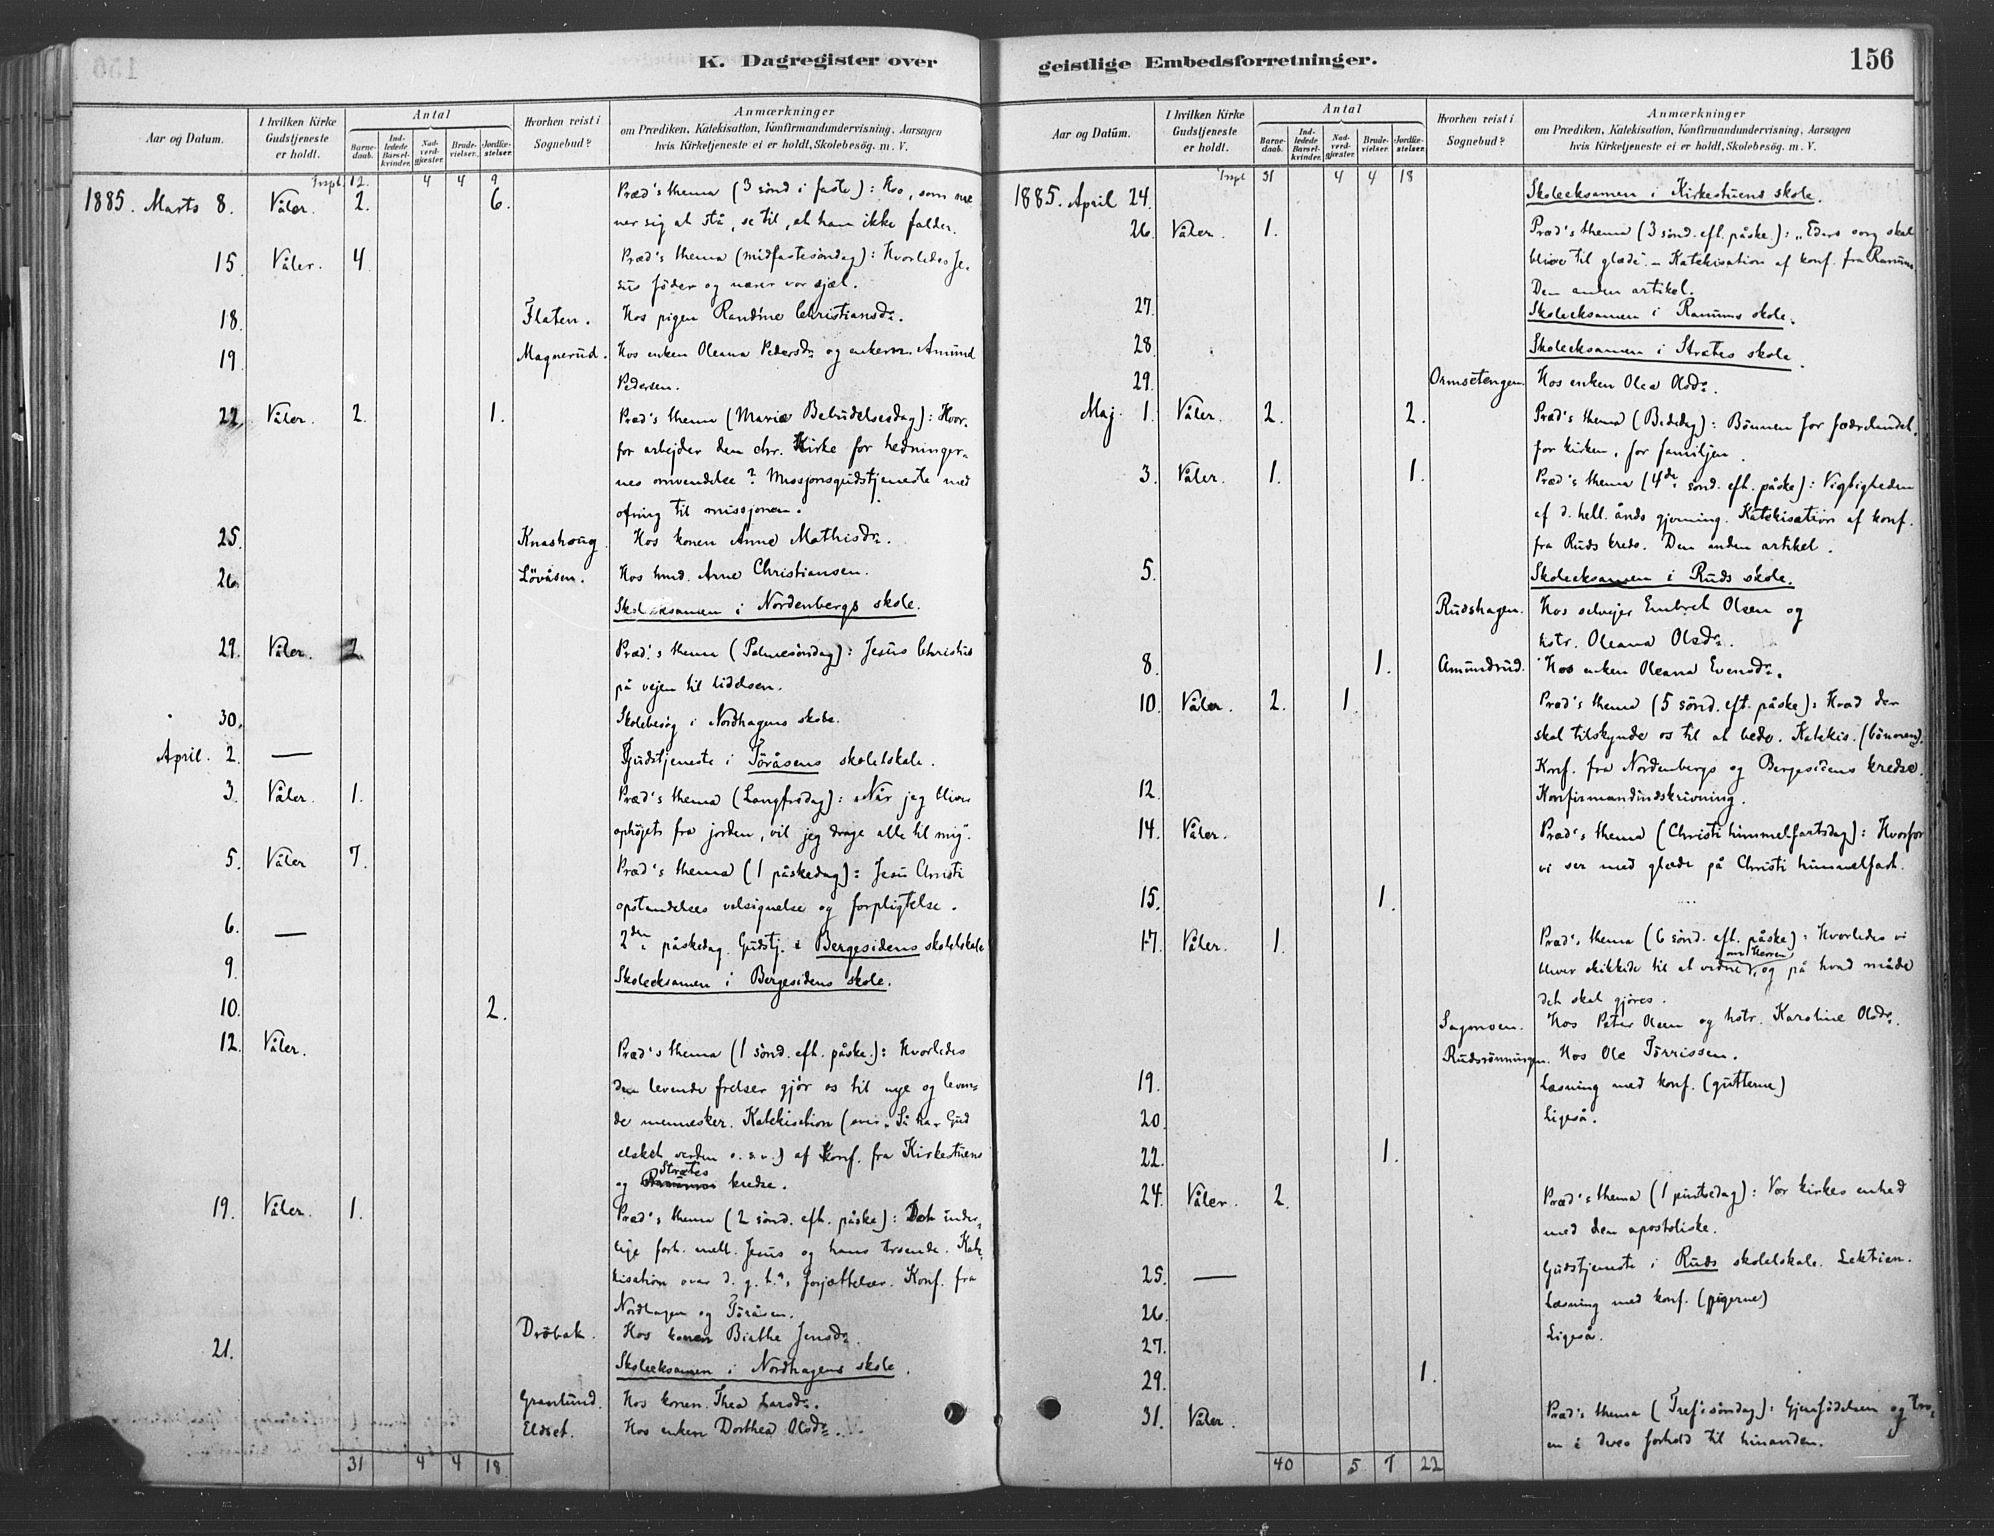 K. Dagregister over
Aar og Datum.
I hvilken Kirke Gudstjeneste er holdt.
Antal
Barnedaab.
Indledede Barselkvinder.
Nadverdgjæster.
Brudevielser.
Jordfæstelser.
Hvorhen reist i Sognebud?
Anmærkninger
om Prædiken, Katekisation, Konfirmandundervisning, Aarsagen
hvis Kirketjeneste ei er holdt, Skolebesøg. m. V.
Trspt. 12. 4 4 9
1885. Marts 8. Våler. 2. 6. Præd's thema (3 sønd i faste): Hvo, som me
ner sig at stå, se til, at han ikke falder.
15. Våler. 4. Præd's thema (midfastesøndag): Hvorledes Je-
sus føder og nærer vor sjæl.
18. Flaten. Hos pigen Randine Christiansdr.
19. Magnerud. Hos enken Oleana Pedersdr og enkem. Amund
Pedersen.
22. Våler. 2. 1. Præd's thema (Mariæ Bebudelsesdag): Hvor-
for arbejder den chr. Kirke for hedninger-
nes omvendelse? Missjonsgudstjeneste med
ofring til missjonen.
25. Knashoug. Hos konen Anne Mathisdr.
26. Løvåsen. Hos hmd. Arne Christiansen.
Skoleeksamen i Nordenbergs skole.
29. Våler. 2 Præd.'s thema (Palmesøndag): Jesus Christus
på vejen til lidelsen.
30. Skolebesøg i Nordhagens skole.
April. 2. — Gudstjeneste i Töråsens skolelokale.
3. Våler. 1. Præd's thema (Langfredag): "Når jeg bliver
ophøjet fra jorden, vil jeg drage alle til mig".
5. Våler 7. Præd's thema (1 påskedag): Jesu Christi
opstandelses velsignelse og forpligtelse.
6. — 2den påskedag. Gudstj. i Bergesidens skolelokale
9. Skoleeksamen i Bergesidens skole.
10. 2.
12. Våler. Præd's thema (1 sønd. eft. påske.): Hvorledes
den levende frelser gjör os til nye og leven-
de mennesker. Katekisation (over "Så har Gud
elsket verden o.s.v.) af konf. fra Kirkestuens
Strætes
og kredse.
19. Våler. 1. Præd's thema (2 sønd. eft. påske): Det inder-
lige forh. mell. Jesus og hans troende. Kate-
kisation over d. g. h.'s forjættelser. Konf. fra
Nordhagen og Töråsen.
21. Dröbak. Hos konen Birthe Jensdr.
Skoleeksamen i Nordhagens skole.
Granlund. Hos konen Thea Larsdr.
Eldset. Hos enken Dorthea Olsdr.
31 4 4 18
geistlige Embedsforretninger.
156
Aar og Datum.
I hvilken Kirke Gudstjeneste er holdt.
Antal
Barnedaab.
Indledede Barselkvinder.
Nadverdgjæster.
Brudevielser.
Jordfæstelser.
Hvorhen reist i Sognebud?
Anmærkninger
om Prædiken, Katekisation, Konfirmandundervisning, Aarsagen
hvis Kirketjeneste ei er holdt, Skolebesøg. m. V.
Trspt 31 4 4 18
1885. April 24. Skoleeksamen i Kirkestuens skole.
26. Våler. 1. Præd's thema (3 sønd. eft. påske.): "Eders sorg skal
blive til glæde". – Katekisation af konf. fra Ranums
Den anden artikel.
27. Skoleeksamen i Ranums skole.
28. Skoleeksamen i Strætes skole.
29. Ormsetengen. Hos enken Olea Olsdr.
Maj. 1. Våler. 2. 2. Præd's thema (Bededag): Bønnen for fædrelandet,
for kirken, for familjen.
3. Våler. 1. 1. Præd's thema (4de sønd. eft. påske): Vigtigheden
af d. hell. ånds gjerning. Katekisation af konf.
fra Ruds kreds. Den anden artikel.
5. Skoleeksamen i Ruds skole.
Rudshagen. Hos selvejer Embret Olsen og
hstr. Oleana Olsdr.
8. 1. Amundrud. Hos enken Oleana Evensdr.
10. Våler. 2. 1. Præd's thema (5 sønd. eft. påske): Hvad der
skal tilskynde os til at bede. Katekis. (bönnen).
Konf. fra Nordenbergs og Bergesidens kredse.
12. Konfirmandindskrivning.
14. Våler. Præd's thema (Christi himmelfartsdag): Hvorfor
vi ser med glæde på Christi himmelfart.
15. 1.
17. Våler. 1. Præd's thema (6 sønd. eft. påske): Hvorledes vi
om Herren
bliver skikkede til at vidne, og på hvad måde
det skal gjøres.
Sagmoen. Hos Peter Olsen og hstr. Karoline Olsdr.
Rudsrönningen. Hos Ole Törrissen.
19. Læsning med konf. (gutterne)
20. Ligeså.
22. 1.
24. Våler. 2. Præd's thema (1 pintsedag): Vor kirkes enhed
med den apostoliske.
25. — Gudstjeneste i Ruds skolelokale. Lektien.
26. Læsning med konf. (pigerne)
27. Ligeså.
29. 1.
31. Våler. Præd's thema (Tref.søndag): Gjenfödelsen og tro-
en i deres forhold til hinanden.
40 5 7 22